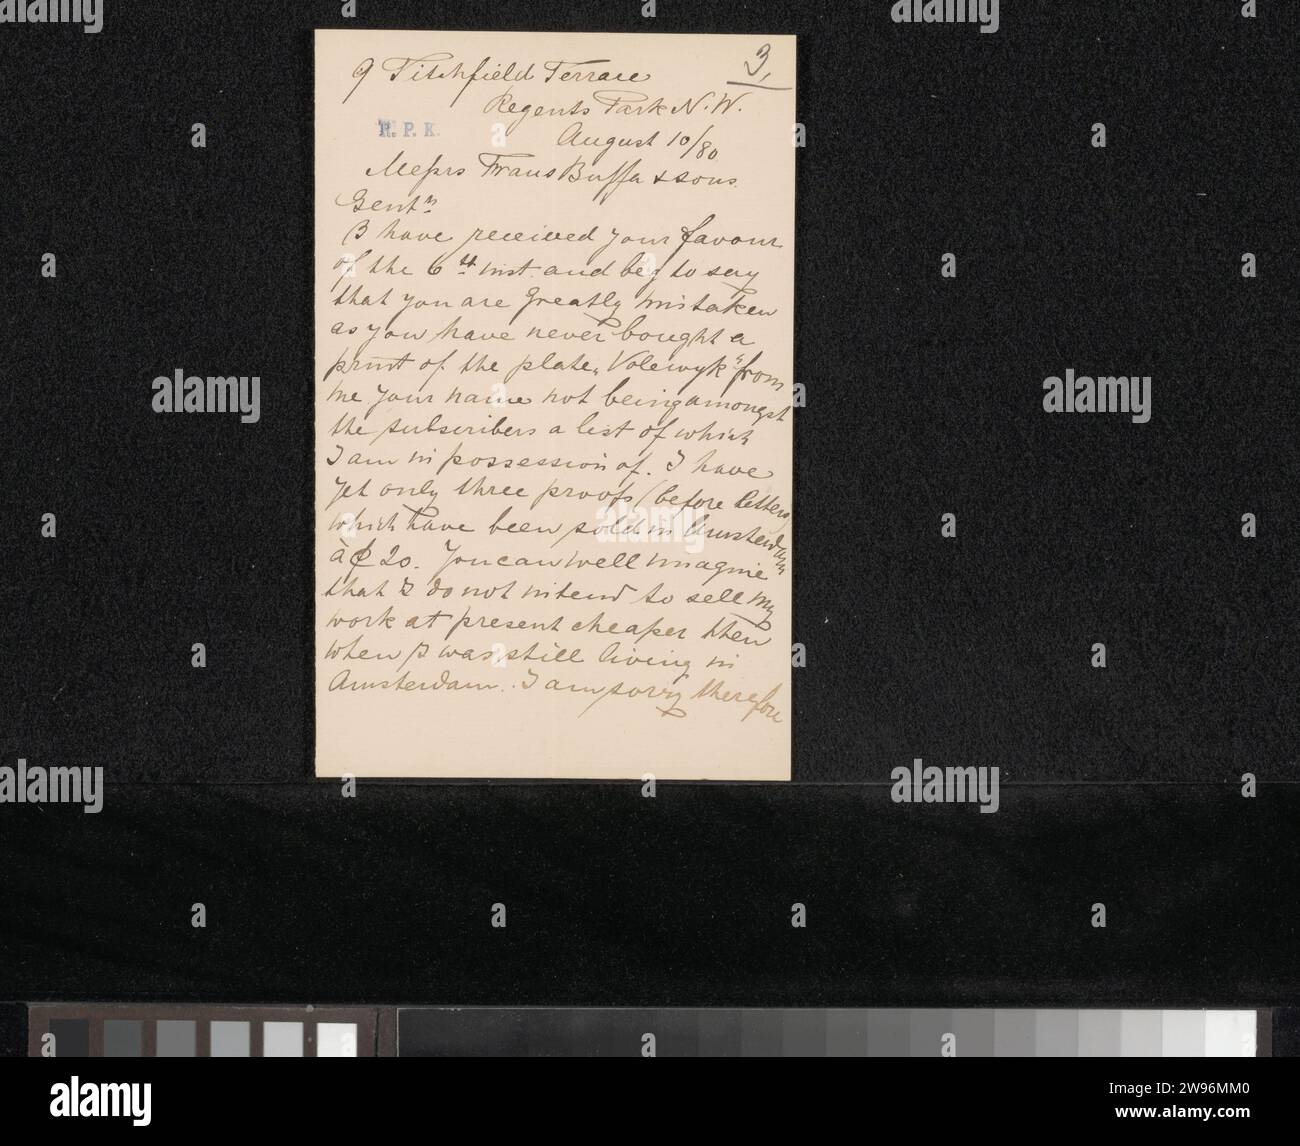 3.
9 Titchfield Terrace
Regents Park N.W.
R. P. K.
August 10/80
Messrs Frans Buffa & sons.
Gentn
I have received your favour
of the 6th inst. and beg to say
that you are greatly mistaken
as you have never bought a
print of the plate „Volewyk" from
me your name not being amongst
the subscribers a list of which
I am in possession of. I have
yet only three proofs (before letters)
which have been sold in Amsterdam
à 20. You can well imagine
that I do not intend to sell my
work at present cheaper then
when I was still living in
Amsterdam. I am sorry therefore
alamy
Image ID: 2W96MM0
www.alamy.com